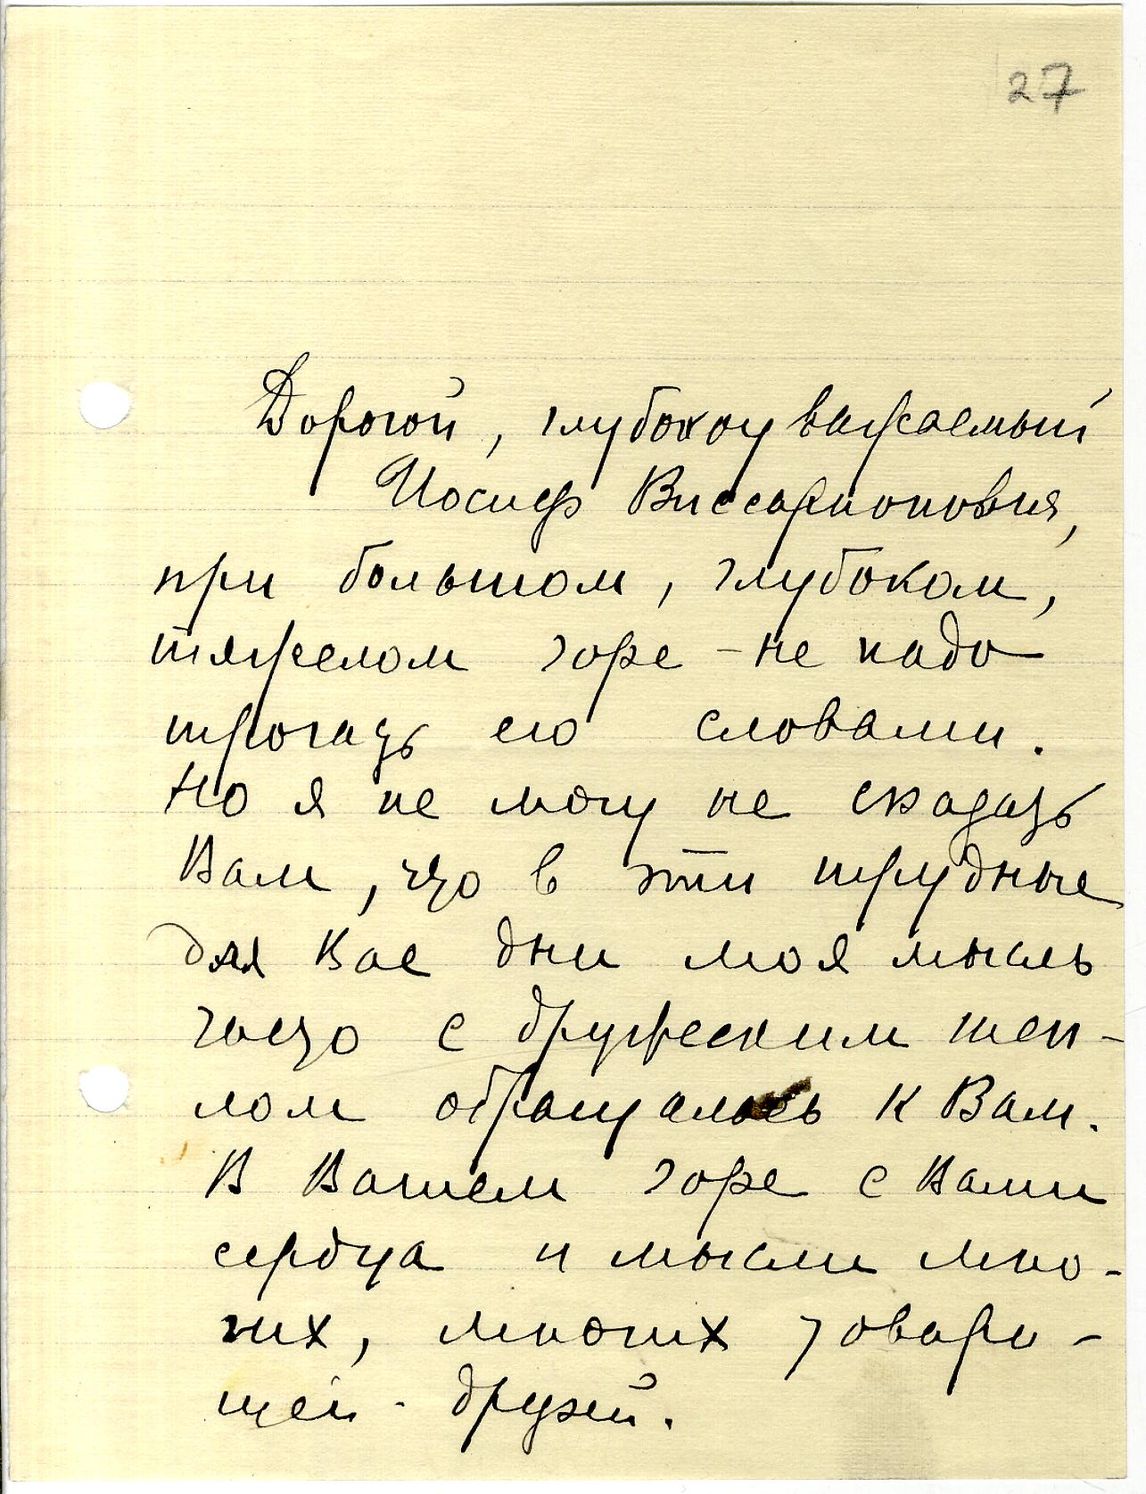 27
Дорогой, глубокоуважаемый
Иосиф Виссарионович,
при большом, глубоком,
тяжелом горе – не надо
трогать его словами.
Но я не могу не сказать
Вам, что в эти трудные
для Вас дни моя мысль
часто с дружеским теп-
лом обращалась к Вам.
В Вашем горе с Вами
сердца и мысли мно-
гих, многих товари-
щей - друзей.